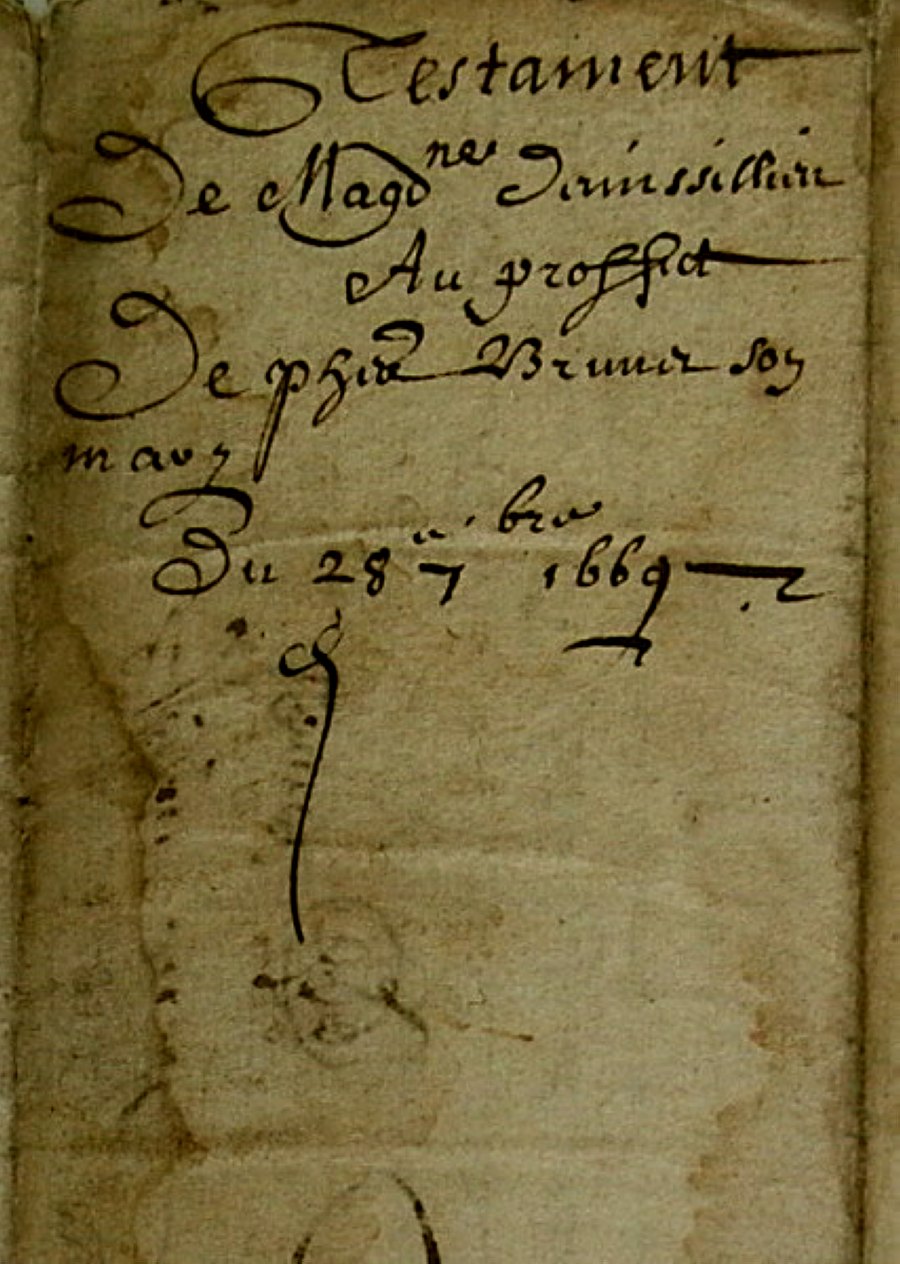 Testament
De Magdne
Au proffict
De phē Brunet son
mary
Du 28e 7bre 1669